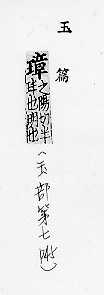 玉篇
璋 之陽切半
圭也明也
(玉部第七